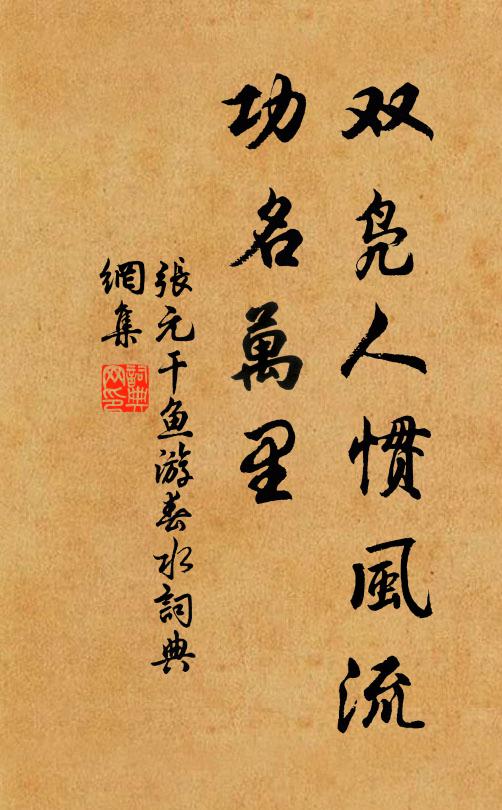 双凫人惯風流
功名萬里
張元干魚游春水詞典
網集
詞典网印